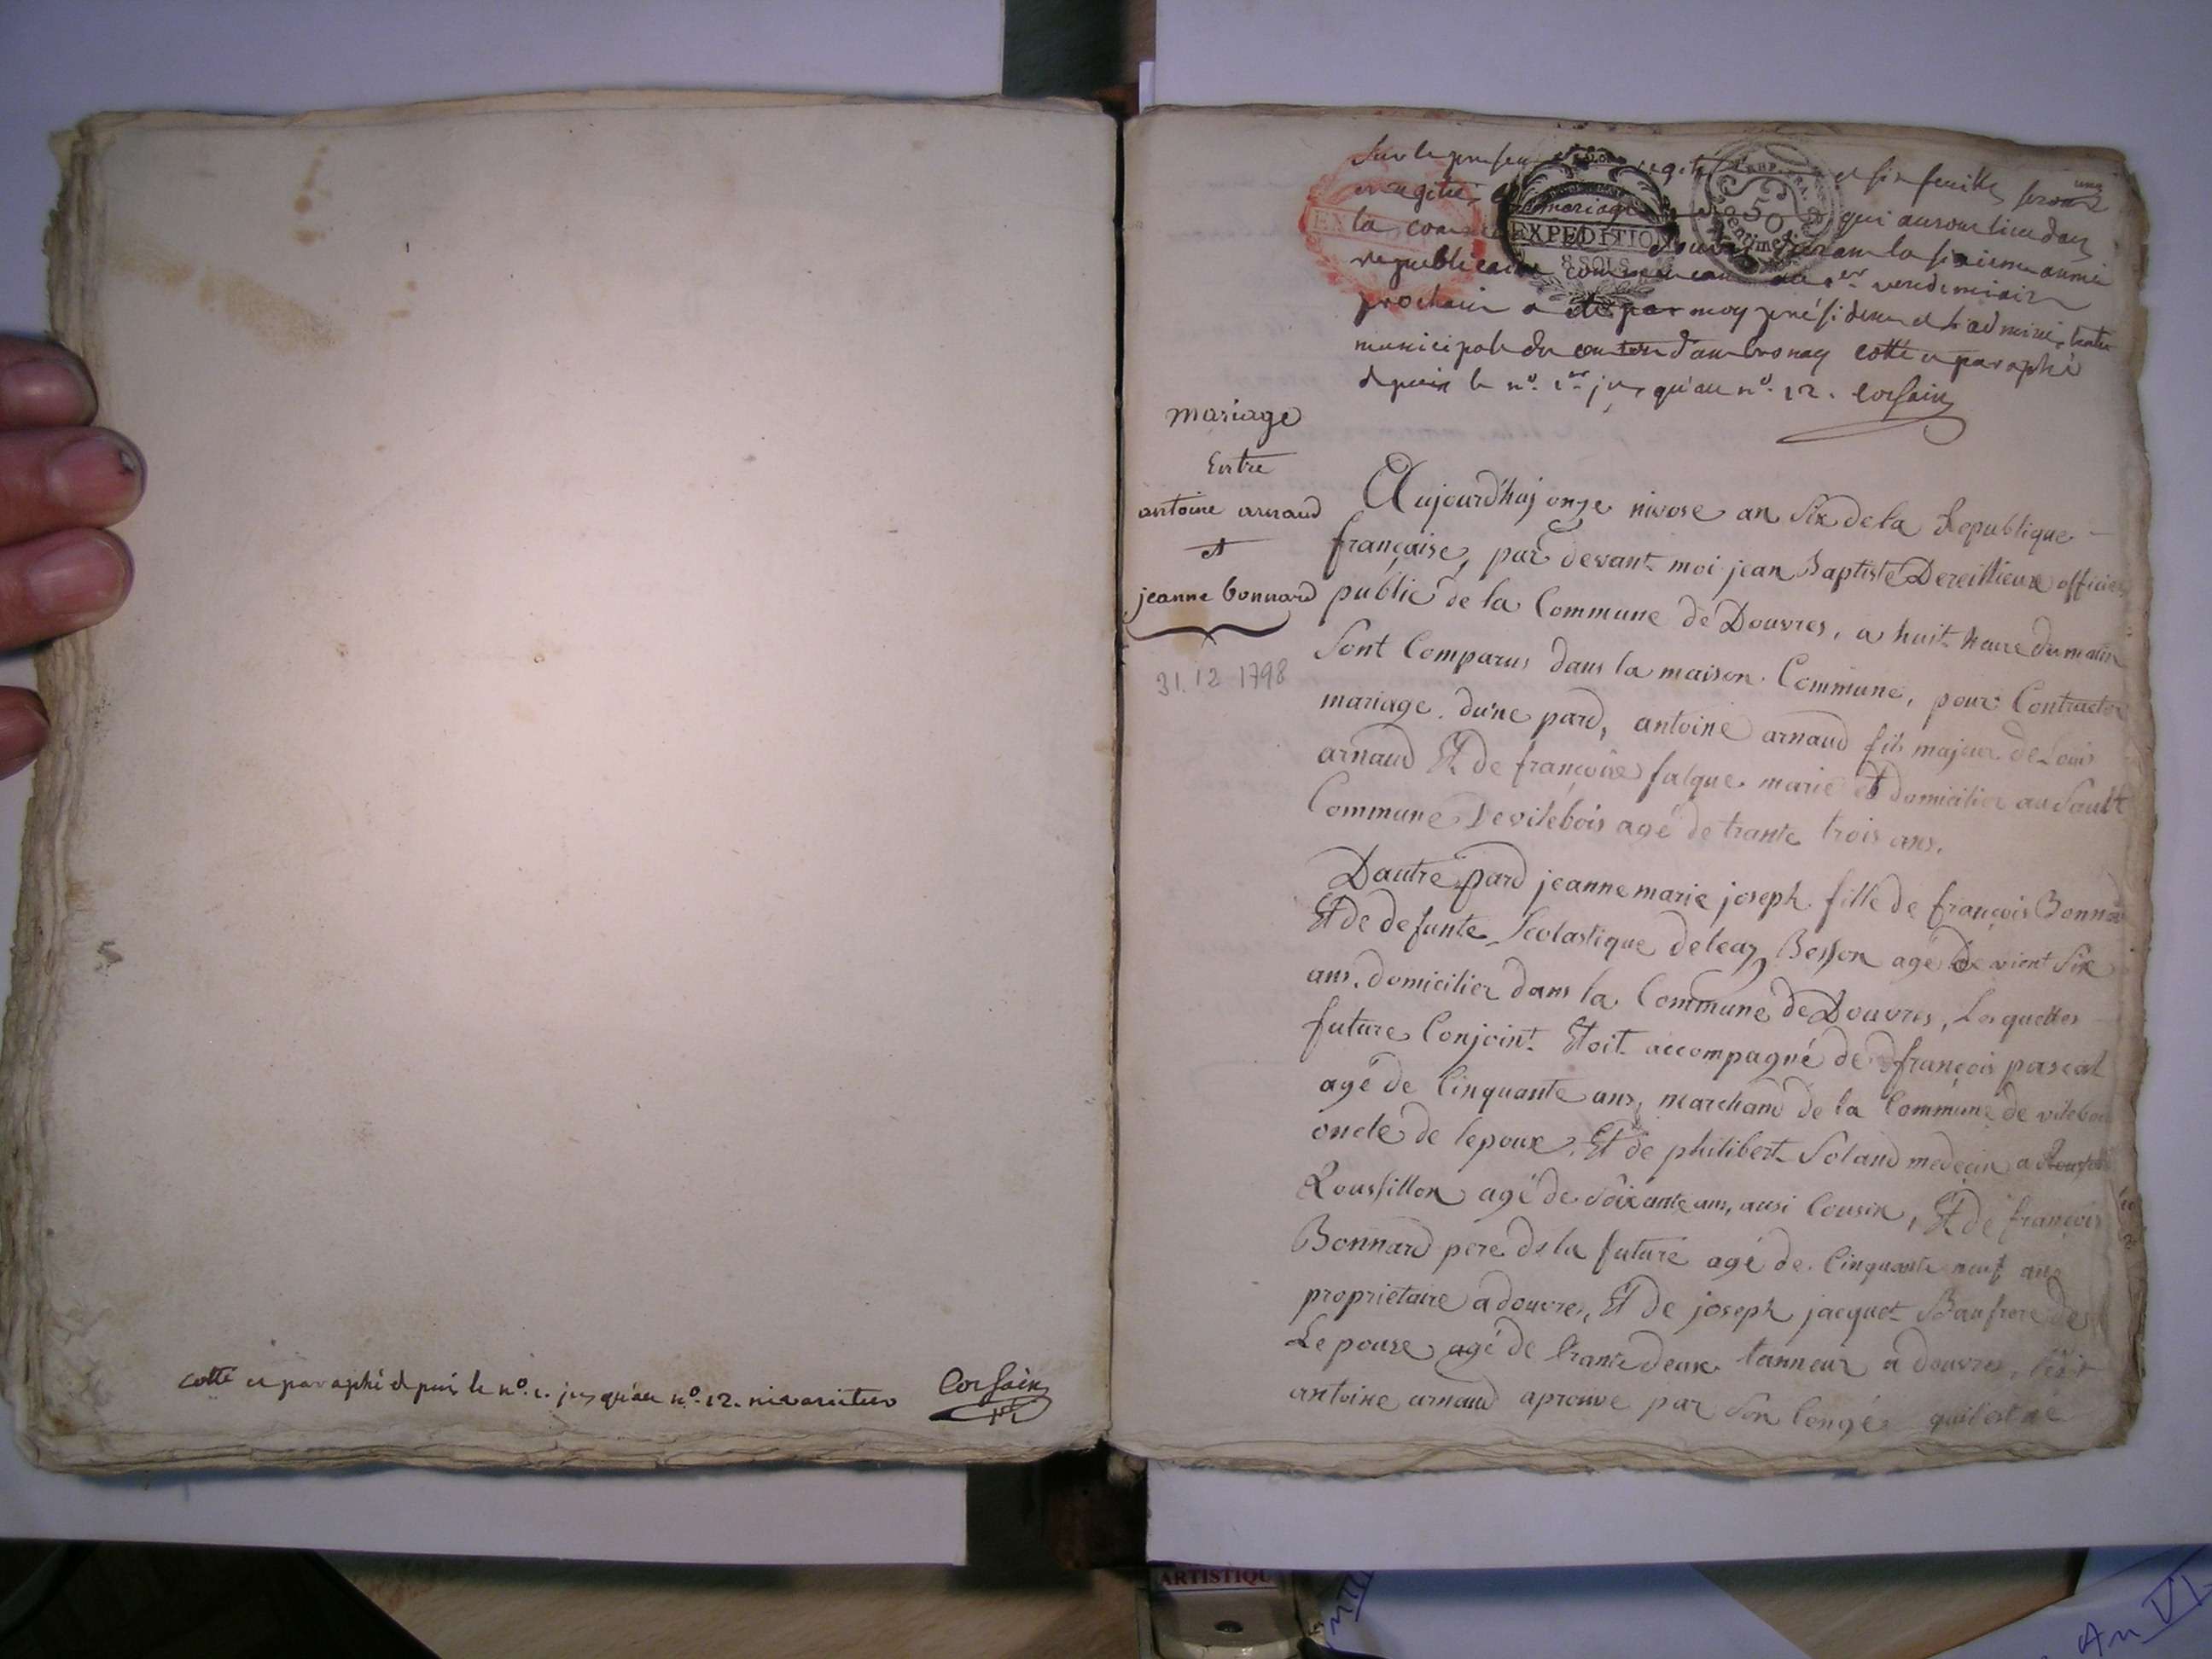 cotté et paraphé depuis le n°. 1. jusqu'au n°. 12. nevarietur Corsain
Sur le present registre et six feuille seront
enregitré mariage qui auront lieu dans
la commune de douvres durant la sixieme année
republicaine commencant au 1er vendemiair
prochain a été par moy président de l'administration
municipale du canton d'ambronay cotté et paraphé
depuis le n°. 1er jusqu'au n°. 12. Corsain
EXPEDITION
8 SOLS
50
centimes
mariage
Entre
antoine arnaud
et
jeanne bonnard
31.12 1798
Aujourd'huj onze nivose an Six de la Republique
française, par devant moi jean Baptiste Dereillieux officier
public de la Commune de Douvres, a huit heure du matin
Sont Comparus dans la maison Commune, pour Contracter
mariage. du'ne pard, antoine arnaud fils majeur de Louis
arnaud Et de françoise falque marié et domicilier au Sault
Commune De vilebois agé de trante trois ans.
Dautre pard jeanne marie joseph fille de françois Bonnard
Et de defunte Scolastique deleaz Besson agé de vient Six
ans. domicilier dans la Commune de Douvres, Lesquelles
future Conjoint Etoit accompagné de françois pascal
agé de Cinquante ans, marchand de la Commune de vilebois
oncle de lepoux. Et de philibert Soland medecin a
Roussillon agé de Soixante ans, ausi Cousin, Et de françois
Bonnard pere de la future agé de Cinquante neuf ans
proprietaire a douvres, Et de joseph jacquet Baufrere de
Lepouse agé de trante deux tanneur a douvres,
antoine arnaud aprouve par Son Congé quil est né
ARTISTIQU
An VI